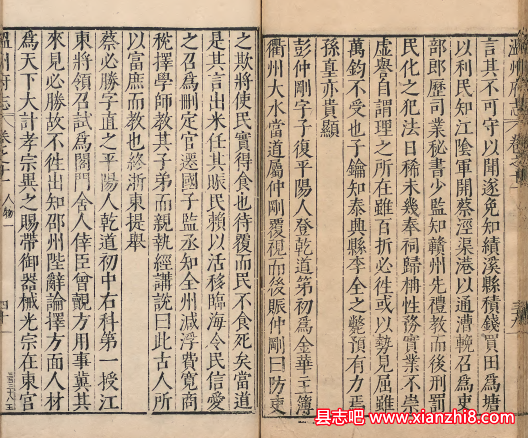 言其不可守以聞遂免知績溪縣積錢買田爲塘
以利民知江陰軍開蔡涇渠港以通漕輓召爲吏
部郎歷司業秘書少監知贛州先禮教而後刑罰
民化之犯法日稀未幾奉祠歸柟性務實業不崇
虛譽自謂理之所在雖百折必徃或以勢見屈雖
萬鈞不受也子鑰知泰興縣李全之斃預有力焉
孫亶亦貴顯
彭仲剛字子復平陽人登乾道第初爲金華主簿
衢州大水當道屬仲剛覆視而後賑仲剛曰防吏
之欺將使民實得食也待覆而民不食死矣當道
是其言出米任其賑民賴以活移臨海令民信愛
之召爲刪定官遷國子監丞知全州減浮費寬商
稅擇學師教其子弟而親執經講說曰此古人所
以富庶而教也終浙東提舉
蔡必勝字直之平陽人乾道初中右科第一授江
東將領召試爲閤門舍人倖臣曾覿方用事冀其
來見必勝故不徃出知邵州陛辭論擇方面人材
爲天下大計孝宗異之賜帶御器械光宗在東宮
溫州府志 卷之十一 人物一 四十
县志吧→www.xianzhi8.com